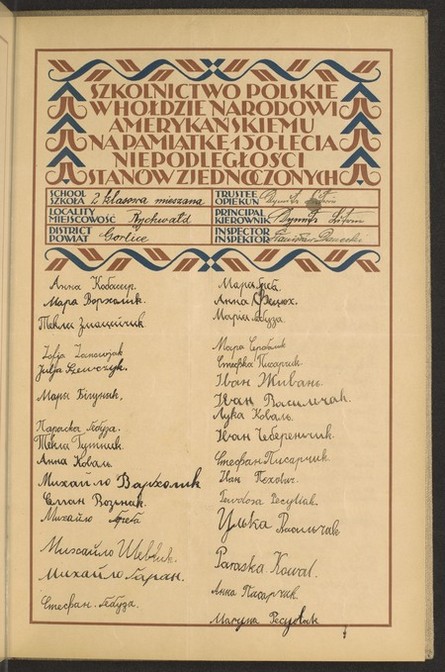 SZKOLNICTWO POLSKIE
W HOŁDZIE NARODOWI
AMERYKAŃSKIEMU
NA PAMIĄTKĘ 150-LECIA
NIEPODLEGŁOŚCI
STANÓW ZJEDNOCZONYCH
SCHOOL
SZKOŁA 2 klasowa mieszana
TRUSTEE
OPIEKUN
LOCALITY
MIEJSCOWOŚĆ Rychwałd
PRINCIPAL
KIEROWNIK
DISTRICT
POWIAT Gorlice
INSPECTOR
INSPEKTOR Stanisław
Анна
Мара Ворхолик.
Текля
Zofja
Julja Szewczyk.
Марія
Параска Гбуза.
Текля Гутник.
Анна Коваль
Михайло Вархолик
Возняк.
Михайло
Михайло Шевчик.
Михайло Гаран.
Стефан. Гбуза.
Марія
Анна
Марія Гбуза.
Мара
Стефка Писарчик.
Іван Живань.
Іван Василечак.
Лука Коваль.
Іван Чеберенчик.
Стефан Писарчик.
Іван Пехова.
Teodora Pecyliak.
Улька Василечак
Paraska Kowal.
Анна Писарчик.
Maryna Pecyliak